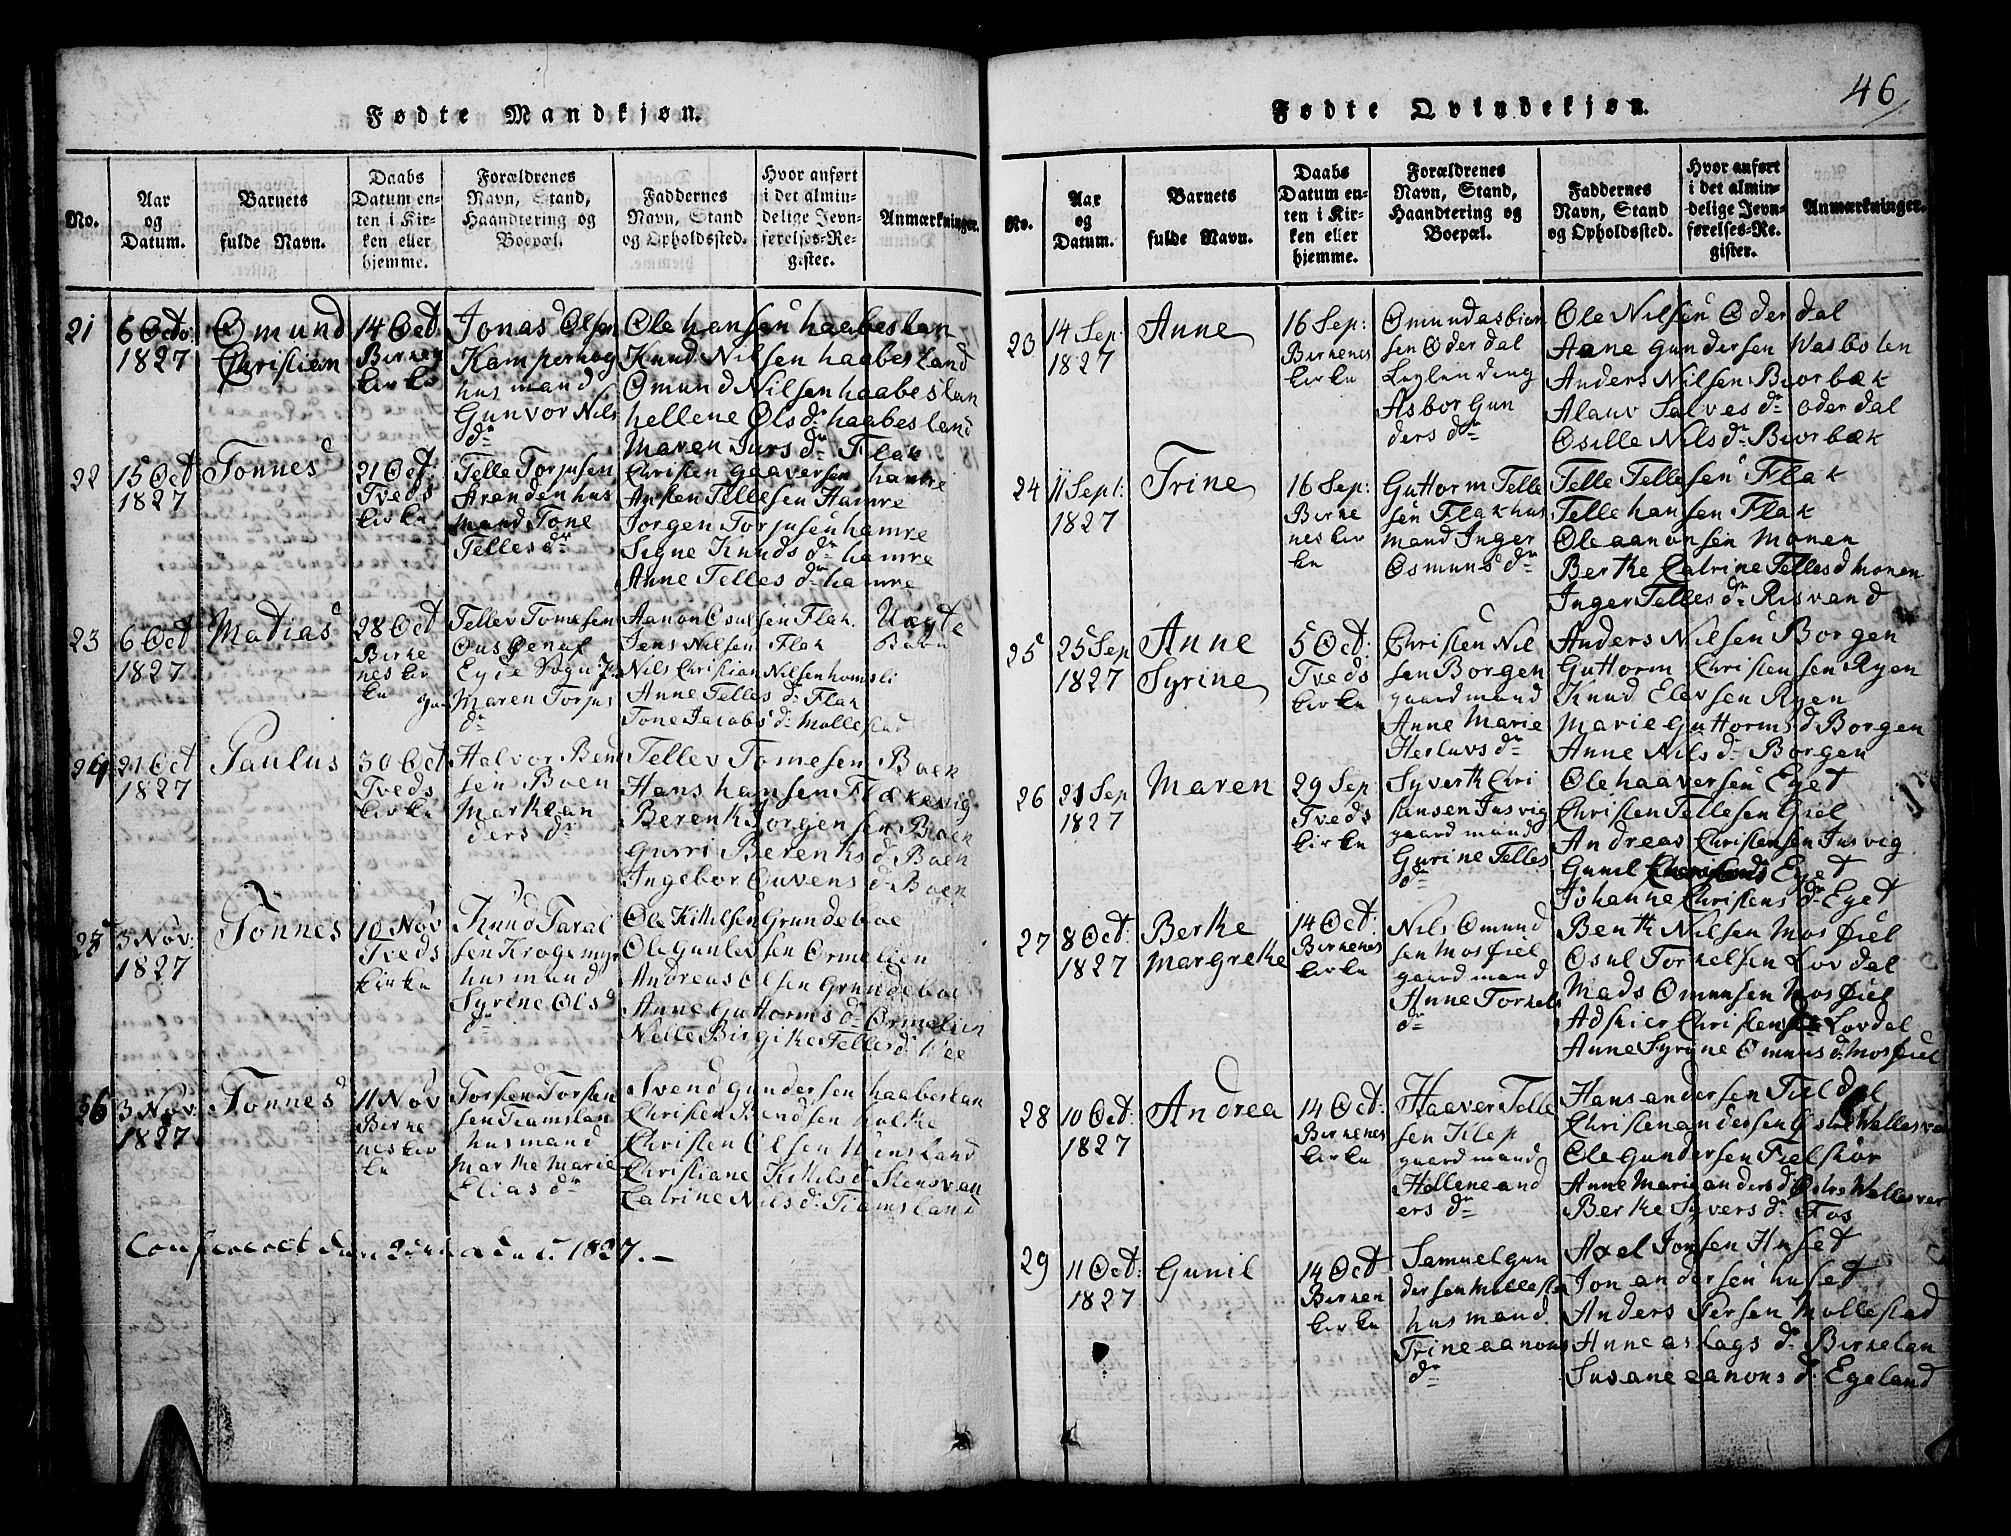 46
Fødte Mandkjøn.
No.
Aar
og
Datum.
Barnets
fulde Navn.
Daabs
Datum en-
ten i Kir-
ken eller
hjemme.
Forældrenes
Navn, Stand,
Haandtering og
Boepæl.
Faddernes
Navn, Stand
og Opholdssted.
Hvor anført
i det almin-
delige Jevn-
førelses-Re-
gister.
Anmærkninger.
21
6 Octo:
1827
Omund
Christian
14 Oct
Birkenes
kirke
Jonas Olsen
Kamperhog
husmand
Gunvor Nils
dr
Ole Hansen haabeslan
Knud Nilsen haabesland
Omund Nilsen haabeslan
hellene Ols dr haabesland
Maren Jars dr Flak
22
15 Oct
1827
Tønnes
21 Oct:
Tveds
kirke
Telle Torjusen
Arenden hus
mand Tone
Telles dr
Christen gaaversen hamre
Austen Tellesen Hamre
Jorgen Torjusen hamre
Signe Knuds dr hamre
Anne Telles dr hamre
23
6 Oct
1827
Matias
28 Oct
Birke
nes kir
ke
Tellev Tomesen
Eyde Sogn
Maren Torjus
dr
Aanon Osulsen Flak
Jens Nilsen Flak
Nils Christian Nilsen homsli
Anne Telles dr Flak
Tone Jacobs dr Mollestad
Uægte
24
21 Oct
1827
Paulus
30 Oct
Tveds
kirke
Halvor Ben
sen Boen
Marthe an
ders dr
Tellev Tomesen Boen
Hans hansen Flakevig
Berent Jorgensen Boen
Gurri Berents d. Boen
Ingebor Ouvens d. Boen
25
3 Nov:
1827
Tønnes
10 Nov
Tveds
kirke
Knud Taral
sen Krogemyr
husmand
Syrine Ols
dr
Ole Kittilsen Grundeboe
Ole Gunlevsen Ormelien
Andreas Olsen Grundeboe
Anne Guttorms dr Ormelien
Nelle Birgithe Telles d. Wee
26
3 Nov:
1827
Tønnes
11 Nov
Birke
nes kir
ke
Torsten Torsten
sen Tiamslan
husmand
Marthe Marie
Elias dr
Svend gundersen haabeslan
Christen Bendsen holte
Christen Olsen Wensland
Christiane Kittils d. Stensvan
Catrine Nils d. Tiamsland
Confereret den 1827.
Fødte Qvindekjøn.
No.
Aar
og
Datum.
Barnets
fulde Navn.
Daabs
Datum en-
ten i Kir-
ken eller
hjemme.
Forældrenes
Navn, Stand,
Haandtering og
Boepæl.
Faddernes
Navn, Stand
og Opholdssted.
Hvor anført
i det almin-
delige Jevn-
førelses-Re-
gister.
Anmærkninger.
23
14 Sep:
1827
Anne
16 Sep:
Birkenes
kirke
Omund asbion
sen Oderdal
Leylending
Asbor Gun
ders dr
Ole Nilsen Oderdal
Aane gundersen Wasboten
Anders Nilsen Biorbæk
Alauv Salves dr oderdal
Osille Nils dr Biorbæk
24
11 Sept:
1827
Trine
16 Sep:
Birke
nes kir
ke
Guttorm Telle
sen Flak hus
mand Inger
Osmuns dr
Telle Tellesen Flak
Telle hansen Flak
Ole aanonsen Monen
Berthe Catrine Telles d Monen
Inger Telles dr Risvand
25
25 Sep
1827
Anne
Syrine
5 Oct:
Tveds
kirke
Christen Nil
sen Borgen
gaardmand
Anne Marie
Herluvs dr
Anders Nilsen Borgen
Guttorm Christensen Ryen
Knud Elevsen Ryen
Marie Guttorms d. Borgen
Anne Nils dr Borgen
26
21 Sep
1827
Maren
29 Sep
Tveds
kirke
Syvert Chri
stensen Jusvig
gaardmand
Gurine Telles
dr
Ole haaversen Eget
Christen Tellesen Giel
Andreas Christensen Jusvig
Gunil Eget
Johanne Christens dr Eget
27
8 Oct:
1827
Berthe
Margrethe
14 Oct:
Birkenes
kirke
Nils Omund
sen Mosfiel
gaardmand
Anne Torkels
dr
Benth Nilsen Mosfiel
Osul Torkelsen Lovdal
Mads Omunsen Mosfiel
Adskier Christens Lovdal
Anne Syrine Omuns d. Mosfiel
28
10 Oct:
1827
Andrea
14 Oct:
Birkenes
kirke
Haaver Telle
sen Tilep
gaardmand
Hellene and
ers dr
Hans andersen Fieldal
Christen andersen Wallesvær
Ole Gundersen Fielskor
Anne Marie anders d Ostre Wallesver
Berthe Syvers d. Fos
29
11 Oct:
1827
Gunil
14 Oct
Birken
kirke
Samuel gun
dersen Mollesta
husmand.
Trine aanons
dr
Axel Jonsen Huset
Jon andersen huset
Anders Persen Mollestad
Anne aslags dr Birkelan
Susane aanons d. Egeland